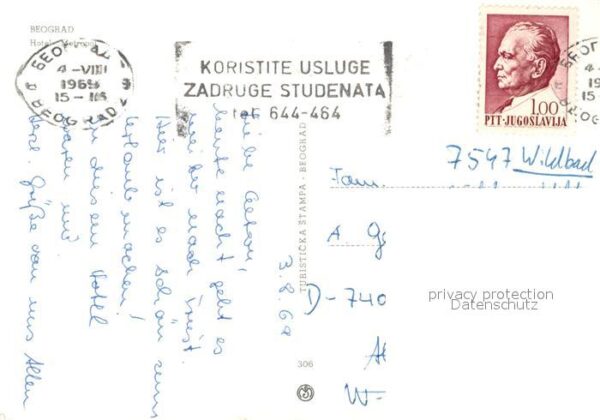 BEOGRAD
Hotel „Metropol"
БЕОГРАД
4-VIII
1969
15-16
BEOGRAD
KORISTITE USLUGE
ZADRUGE STUDENATA
tel. 644-464
1.00
PTT-JUGOSLAVIJA
7547 Wildbad
Fam.
A. G
D-740
W-
privacy protection
Datenschutz
TURISTIČKA ŠTAMPA - BEOGRAD
306
3.8.69
Liebe Eltern,
heute nacht geht es
wieder nach
Hier ist es schön zum
Urlaub machen!
In diesem Hotel
waren wir.
Herzl. Grüße von uns Allen